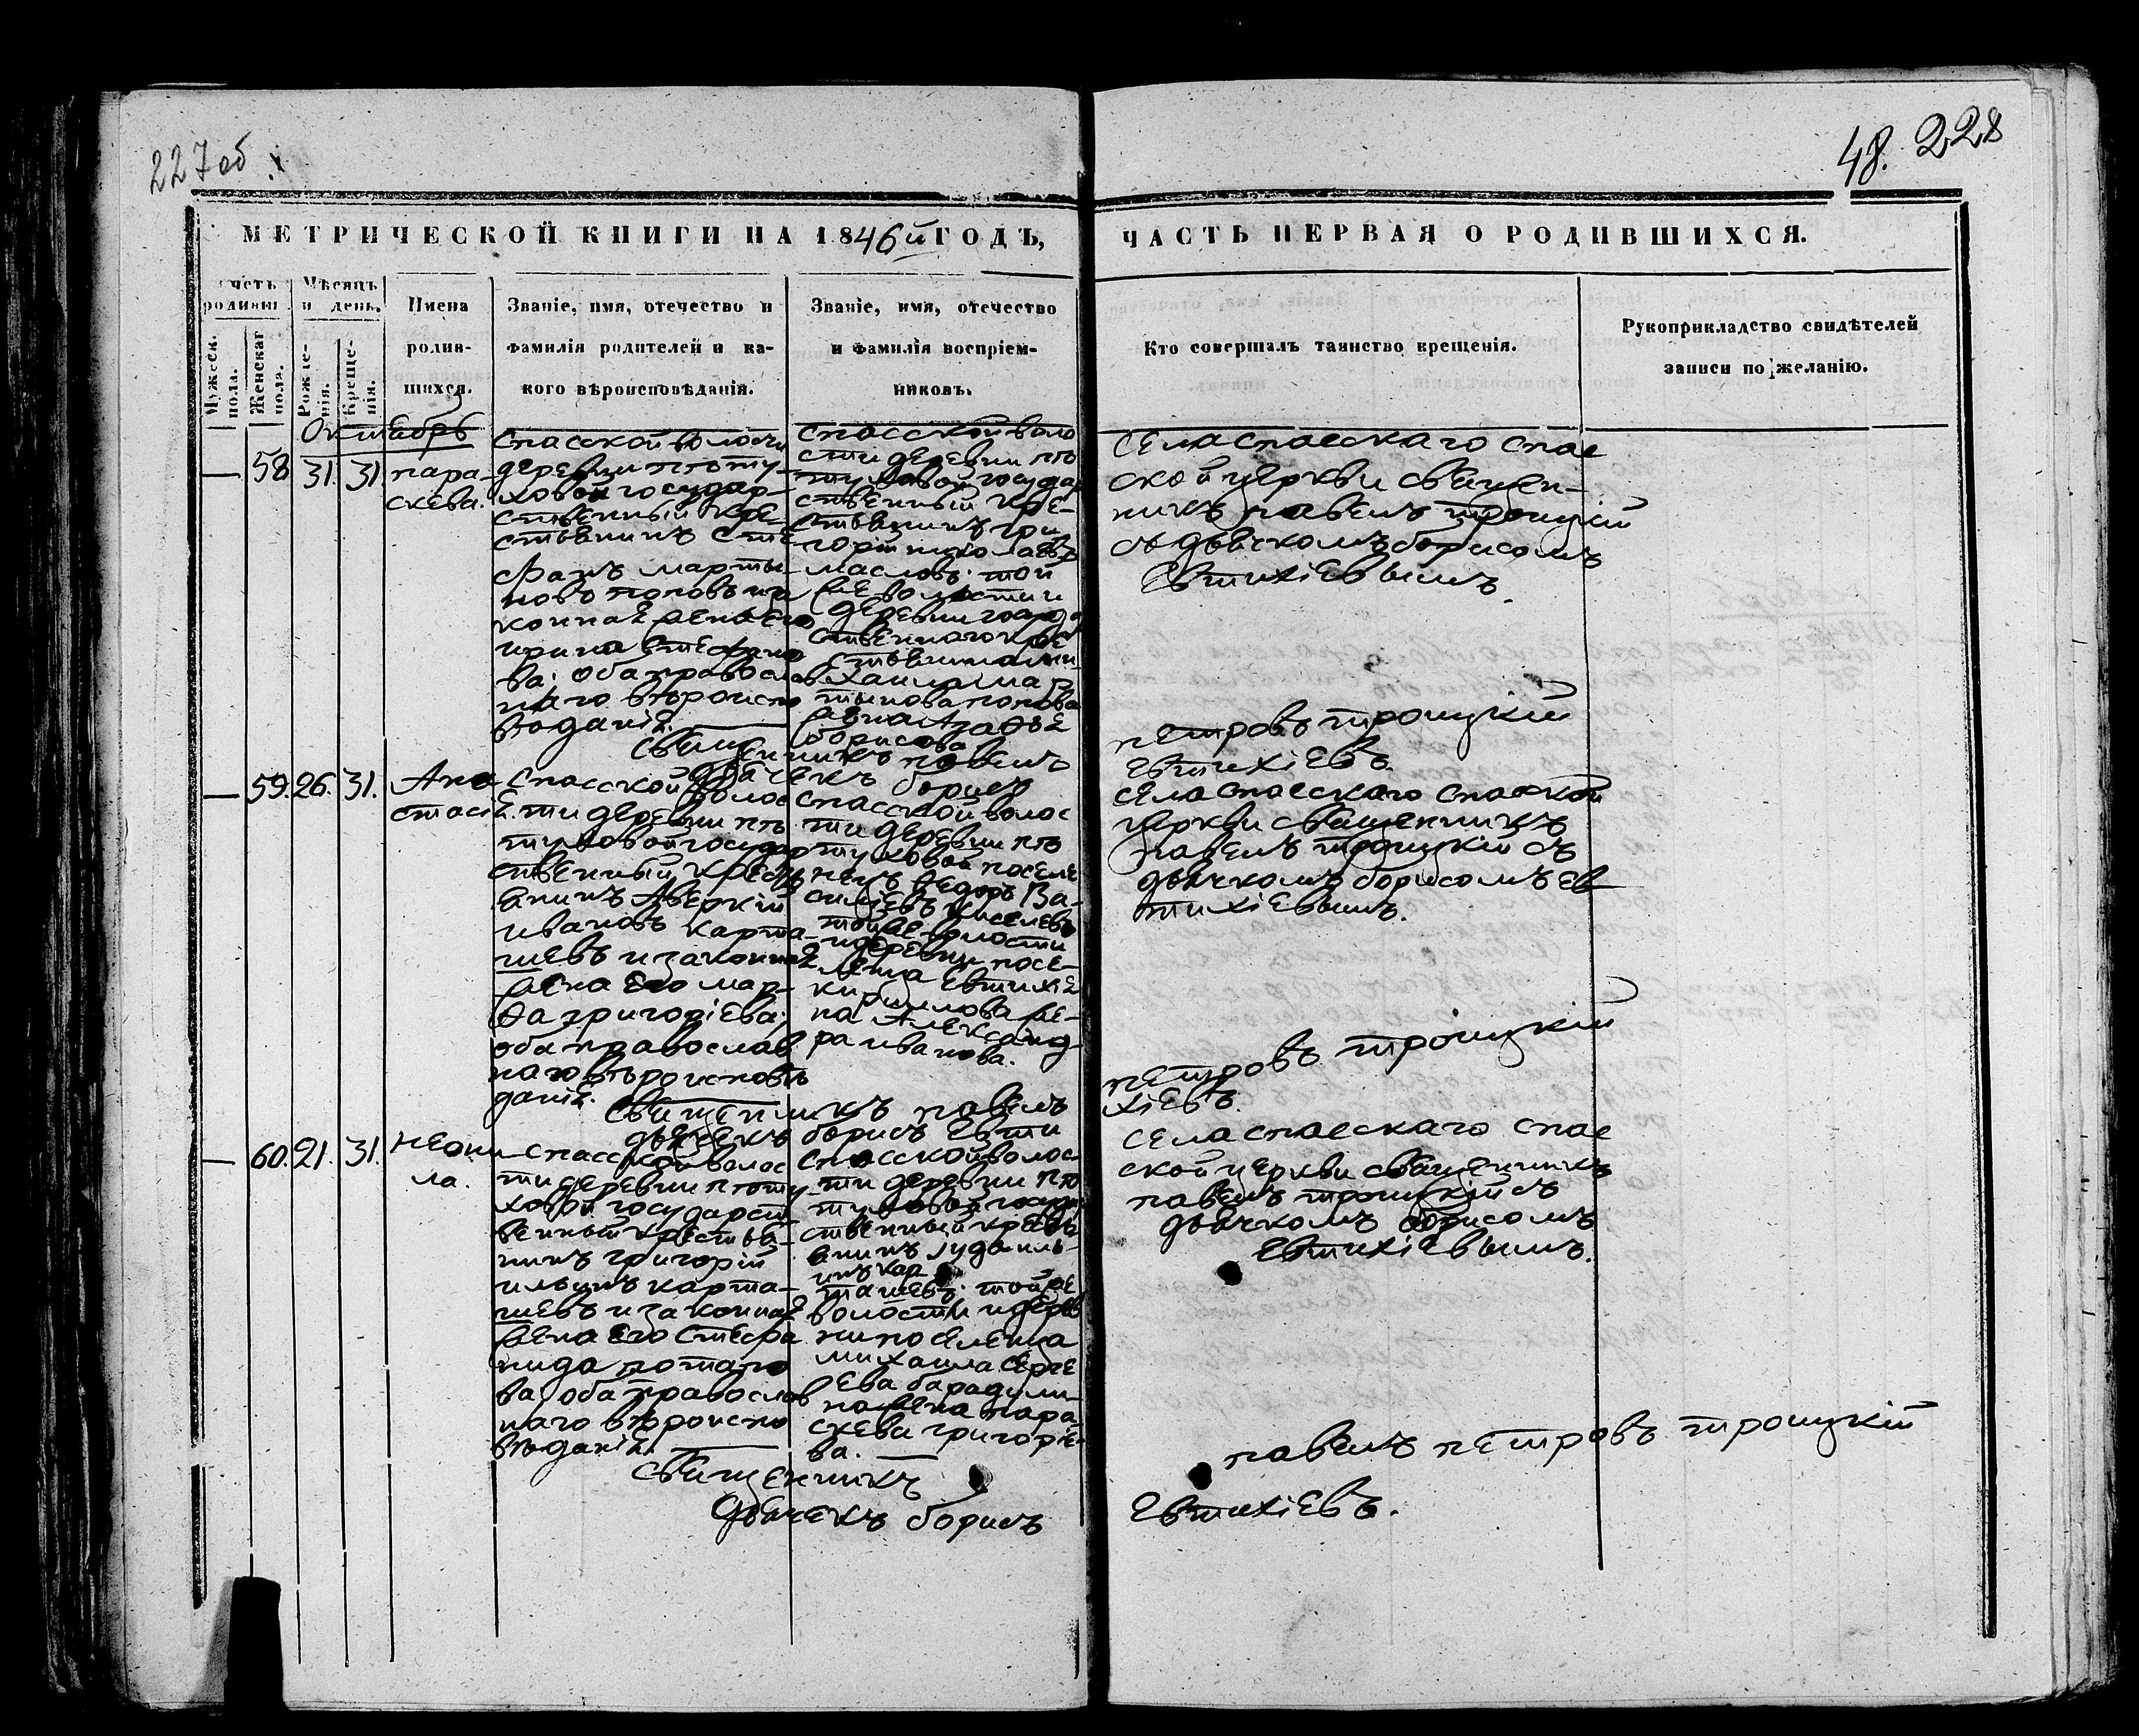 227 об
48. 228
МЕТРИЧЕСКОЙ КНИГИ НА 1846й ГОДЪ,
ЧАСТЬ ПЕРВАЯ О РОДИВШИХСЯ.
Мужеск. пола.
Женскаг пола.
Мѣсяцъ и день.
Рожденія.
Крещенія.
Имена
родив-
шихся.
Званіе, имя, отечество и
фамилія родителей и ка-
кого вѣроисповѣданія.
Званіе, имя, отечество
и фамилія воспріем-
никовъ.
Кто совершалъ таинство крещенія.
Рукоприкладство свидѣтелей
записи по желанію.
Октябрь
58 31. 31. пара-
скева.
Спасской волости
деревни пету-
ховой государ-
ственный кре-
стьянинъ Сте-
фанъ марты-
новъ поповъ и за
конная жена его
ирина Стефано
ва; оба православ
наго вѣроиспо
вѣданія.
Спасской воло
сти деревни пѣ
туховой государ
ственный кре-
стьянинъ гри
горій николаевъ
масловъ; той
же волости и
деревни государ
ственнаго кре
стьянина ми-
хаила мар
тынова попова
жена Агафья
борисова
села спасскаго спас
ской церкви священ-
никъ павелъ троицкій
съ дьячкомъ борисомъ
Евтихіевымъ.
Священникъ павелъ
петровъ троицкій
дьячекъ борисъ
Евтихіевъ.
59. 26. 31. Ана
стасія.
Спасской волос
ти деревни пѣ
туховой государ
ственный кресть
янинъ Аверкій
ивановъ карта-
шевъ и законная
жена его мар-
фа григоріева;
оба православ
наго вѣроисповѣ
данія.
Спасской волос
ти деревни пѣ
туховой поселе
нецъ Федоръ Ва-
силіевъ Киселевъ
той же волости
и деревни посе-
ленца Евтихія
кирилова же-
на Александ-
ра иванова.
села спасскаго спасской
церкви священникъ
павелъ троицкій съ
дьячкомъ борисомъ Ев
тихіевымъ.
Священникъ павелъ
петровъ троицкій
дьячекъ борисъ Евти
хіевъ.
60. 21. 31. Неони
ла.
Спасской волос
ти деревни пету
ховой государст
венный крестья-
нинъ григорій
ильинъ карта-
шевъ и законная
жена его Стефа
нида потапо
ва, оба православ
наго вѣроиспо
вѣданія.
Спасской волос
ти деревни пѣ
туховой государ
ственный кресть
янинъ Іуда иль-
инъ кар
ташевъ; той же
волости и дерев
ни поселенца
михаила серге
ева барадули-
на жена пара-
скева григорье-
ва.
села спасскаго спас
ской церкви священникъ
павелъ троицкій съ
дьячкомъ борисомъ
Евтихіевымъ.
Священникъ
павелъ петровъ троицкій
дьячекъ борисъ
Евтихіевъ.